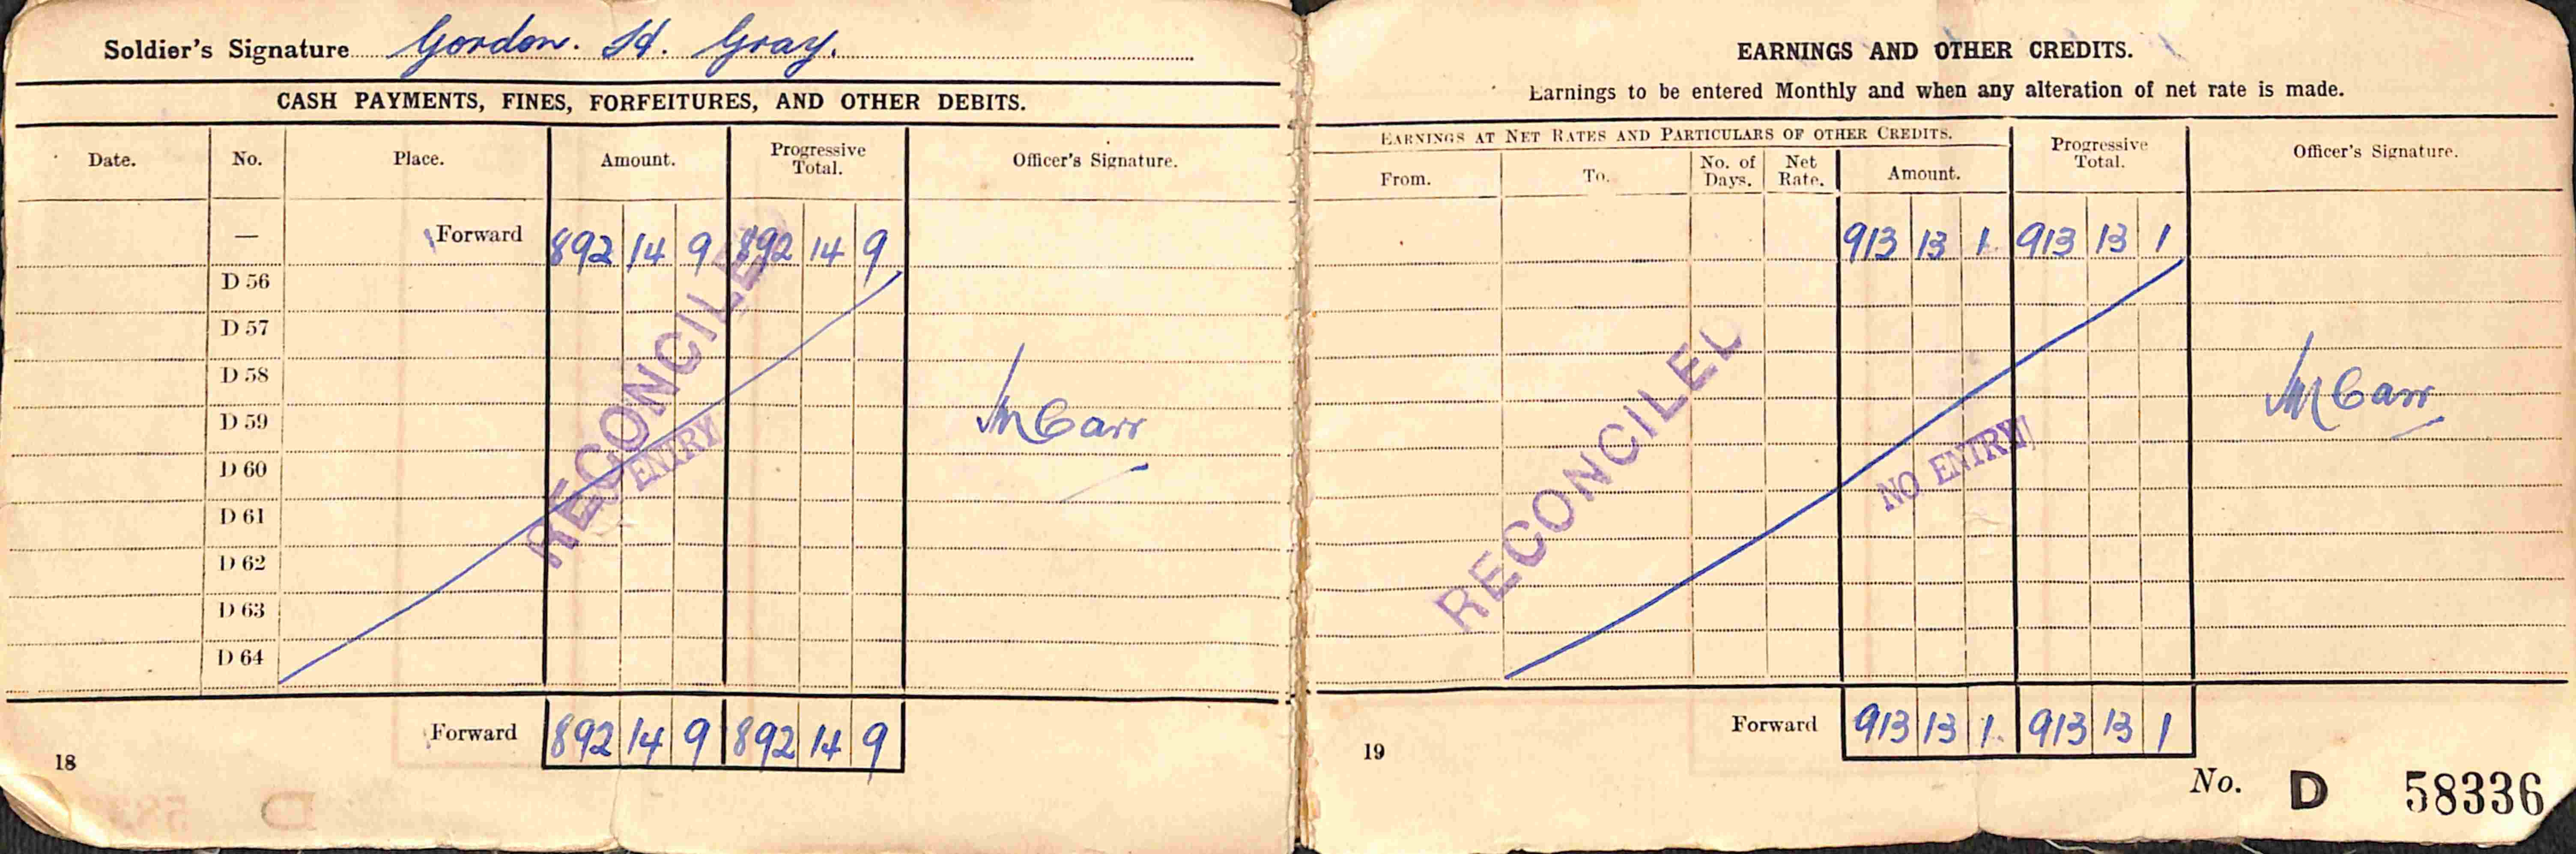 Soldier's Signature Gordon. H. Gray.
CASH PAYMENTS, FINES, FORFEITURES, AND OTHER DEBITS.
Date. No. Place. Amount. Progressive Total. Officer's Signature.
— Forward 892 14 9 892 14 9
D 56
D 57
D 58
D 59
D 60
D 61
D 62
D 63
D 64
RECONCILED
ENTRY
M Carr
Forward 892 14 9 892 14 9
18
EARNINGS AND OTHER CREDITS.
Earnings to be entered Monthly and when any alteration of net rate is made.
EARNINGS AT NET RATES AND PARTICULARS OF OTHER CREDITS. Progressive Total. Officer's Signature.
From. To. No. of Days. Net Rate. Amount.
913 13 1 913 13 1
RECONCILED
NO ENTRY
M Carr
Forward 913 13 1 913 13 1
19
No. D 58336